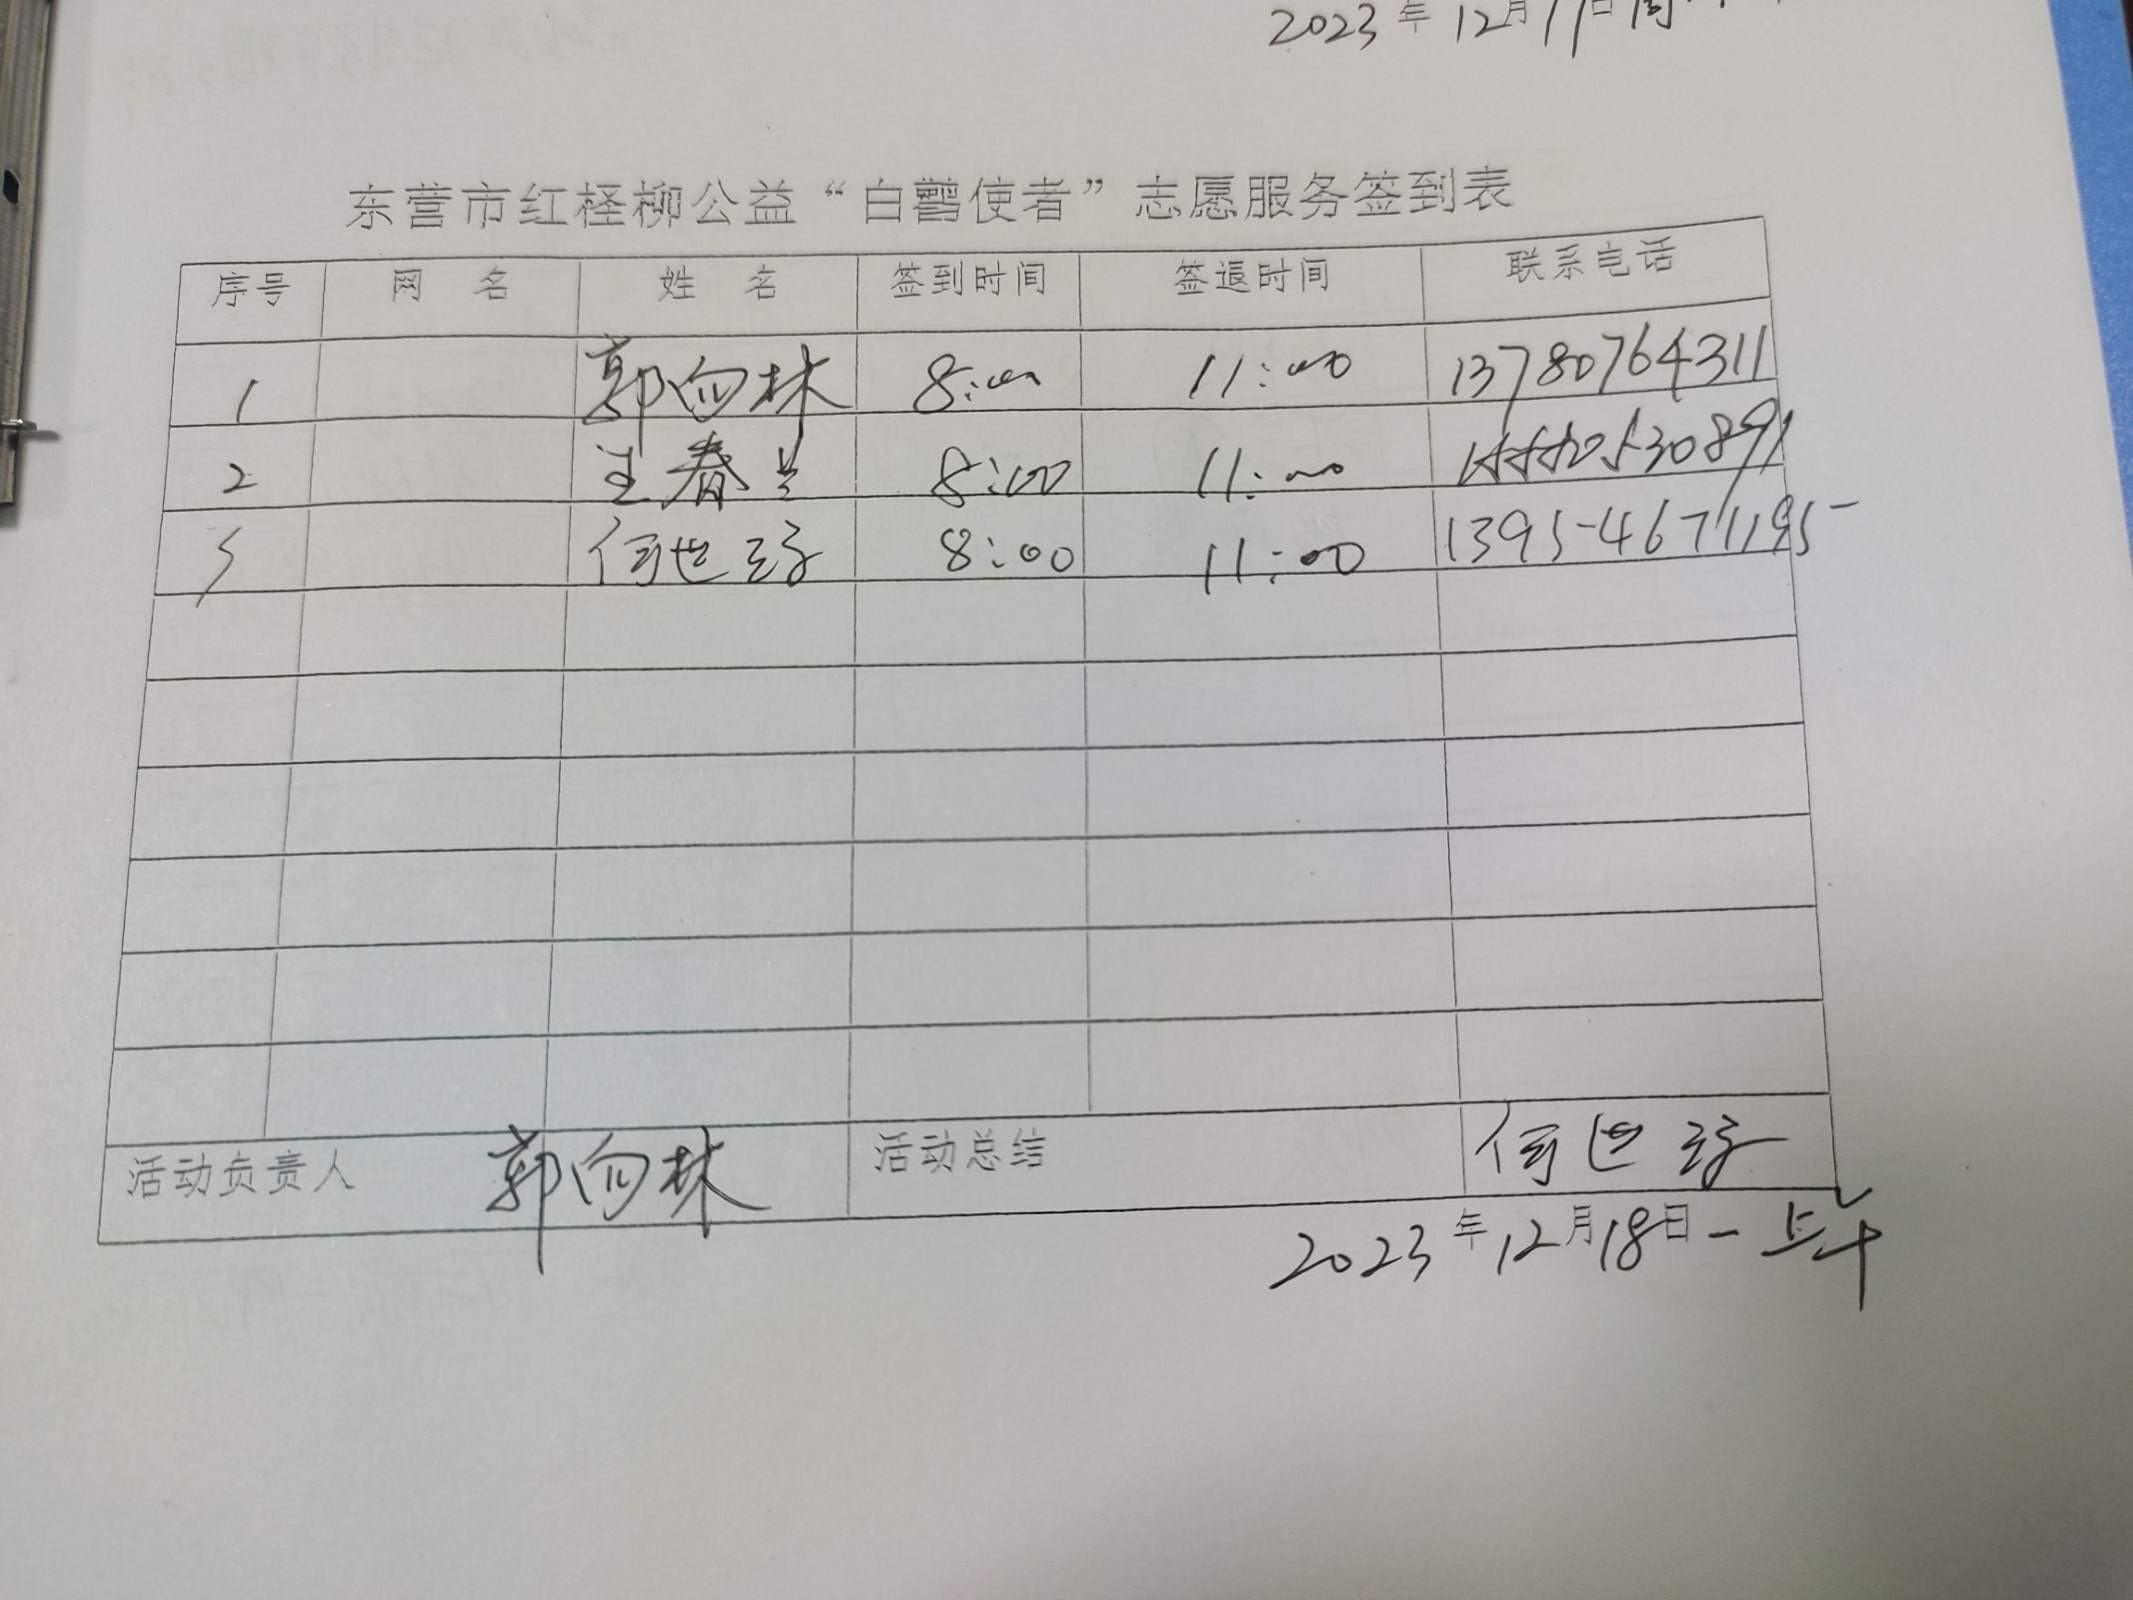 2023年12月17日周
东营市红柽柳公益“白鹳使者”志愿服务签到表
序号 网 名 姓 名 签到时间 签退时间 联系电话
1 郭向林 8:00 11:00 13780764311
2 王春兰 8:00 11:00 30891
3 何世 8:00 11:00 1395-4671195
活动负责人 郭向林 活动总结 何世
2023年12月18日一上午